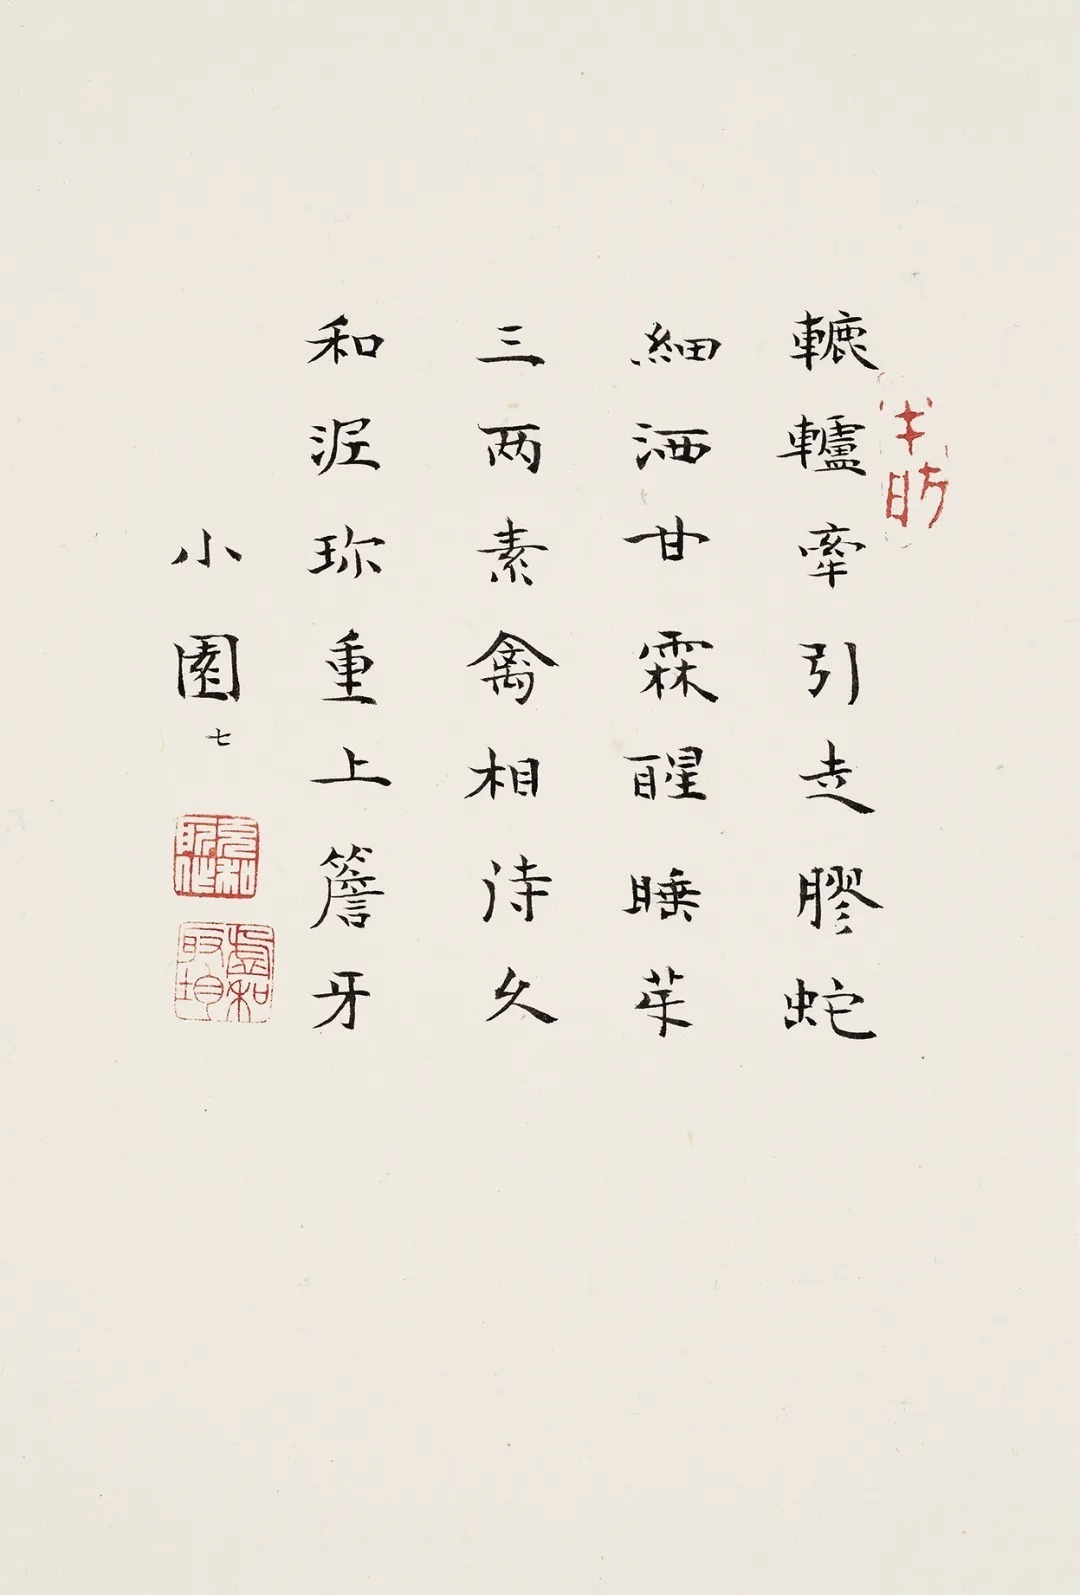 轆轤牽引走膠蛇
細洒甘霖醒睡茱
三两素禽相待久
和泥珎重上簷牙
小園
七